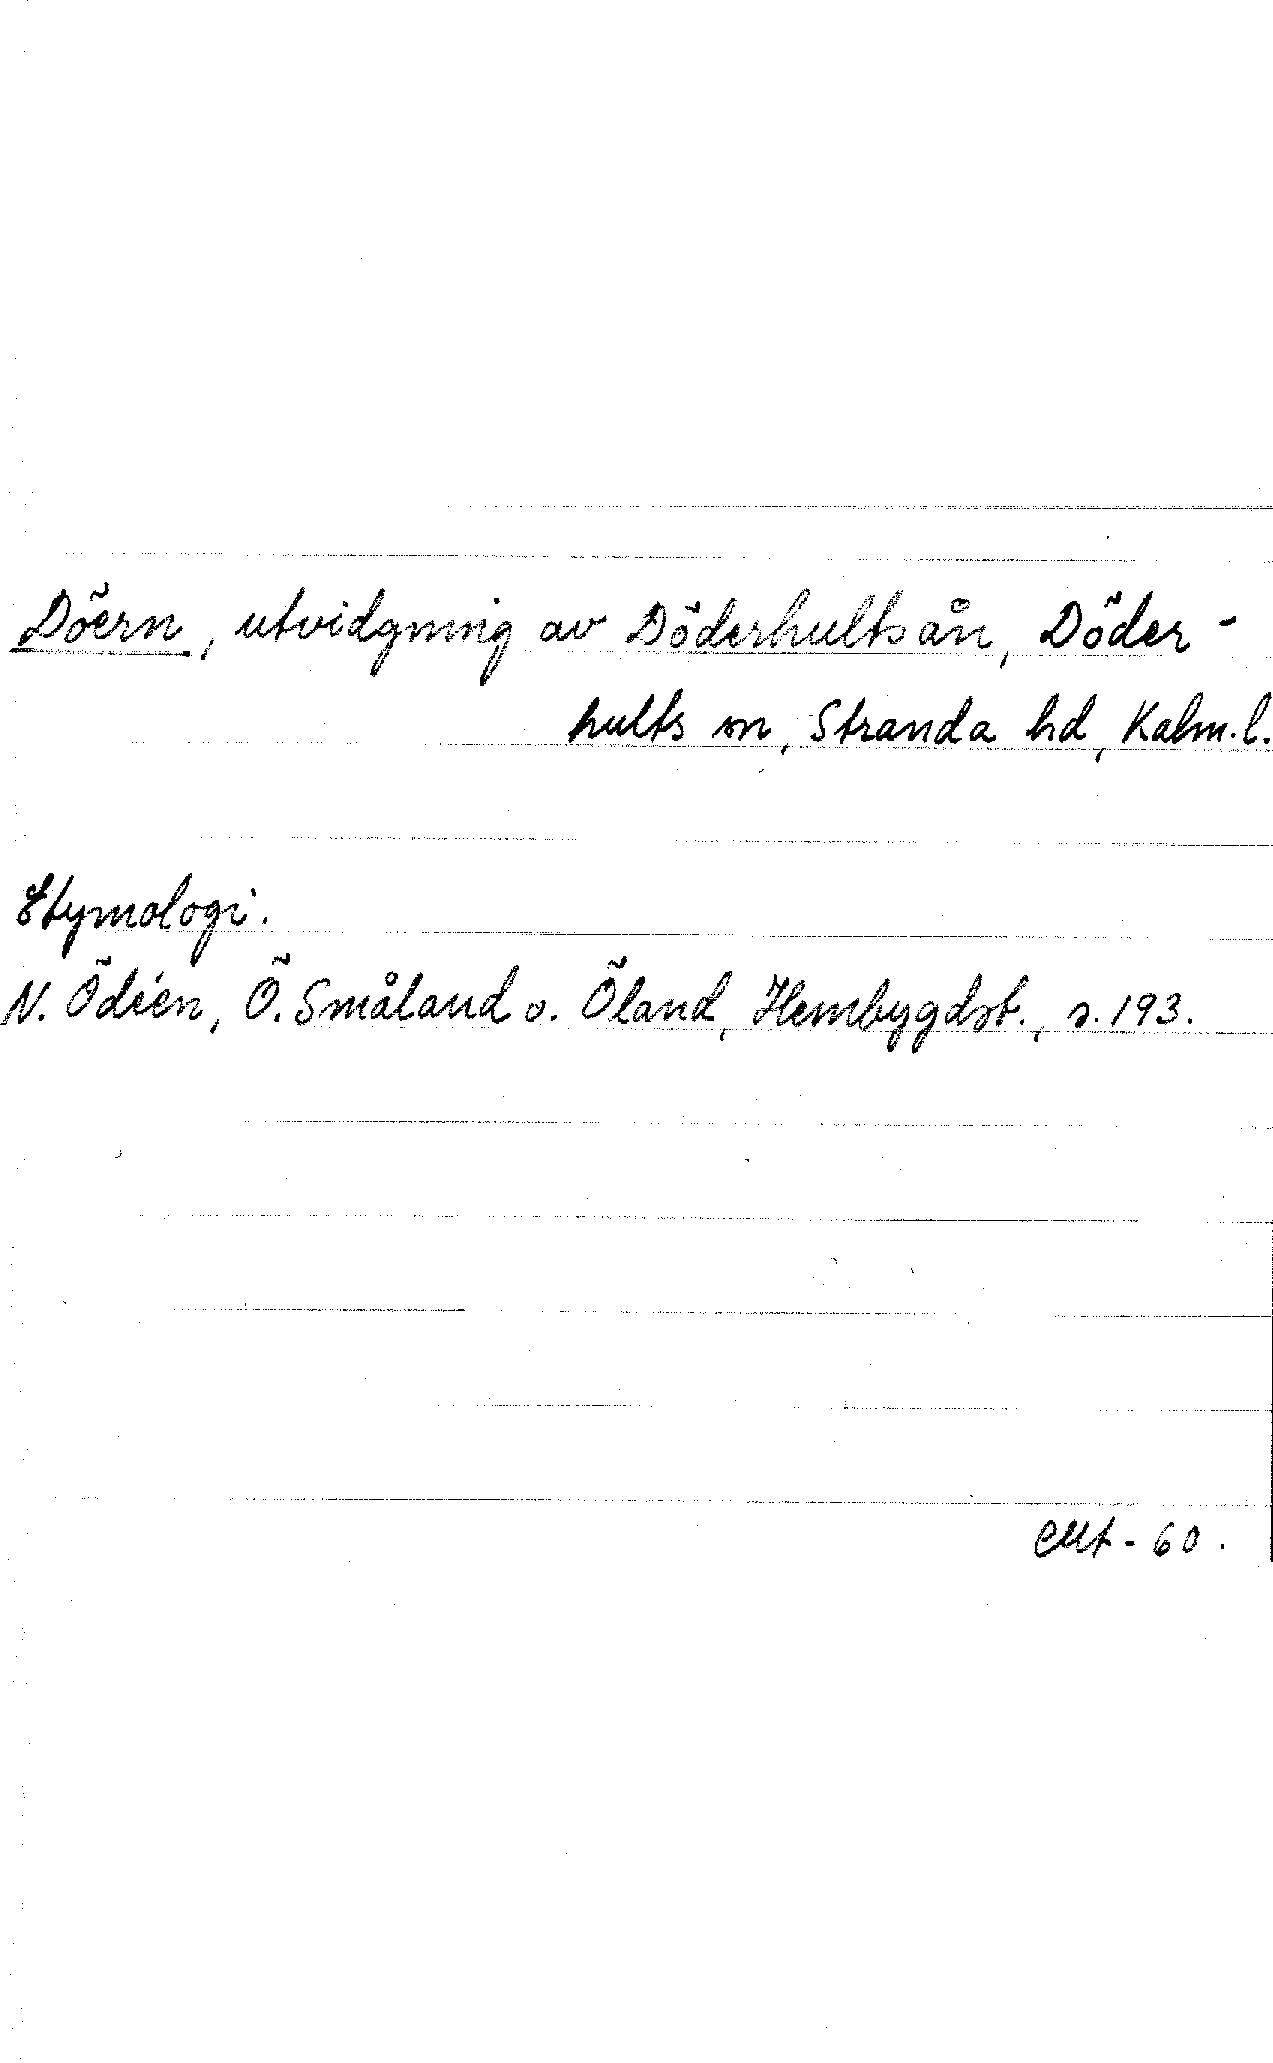 Döern, utvidgning av Döderhultsån, Döder-
hults sn, Stranda hd, Kalm. l.
Etymologi.
N. Ödéen, Ö. Småland o. Öland, Hembygdsb., s. 193.
- 60.